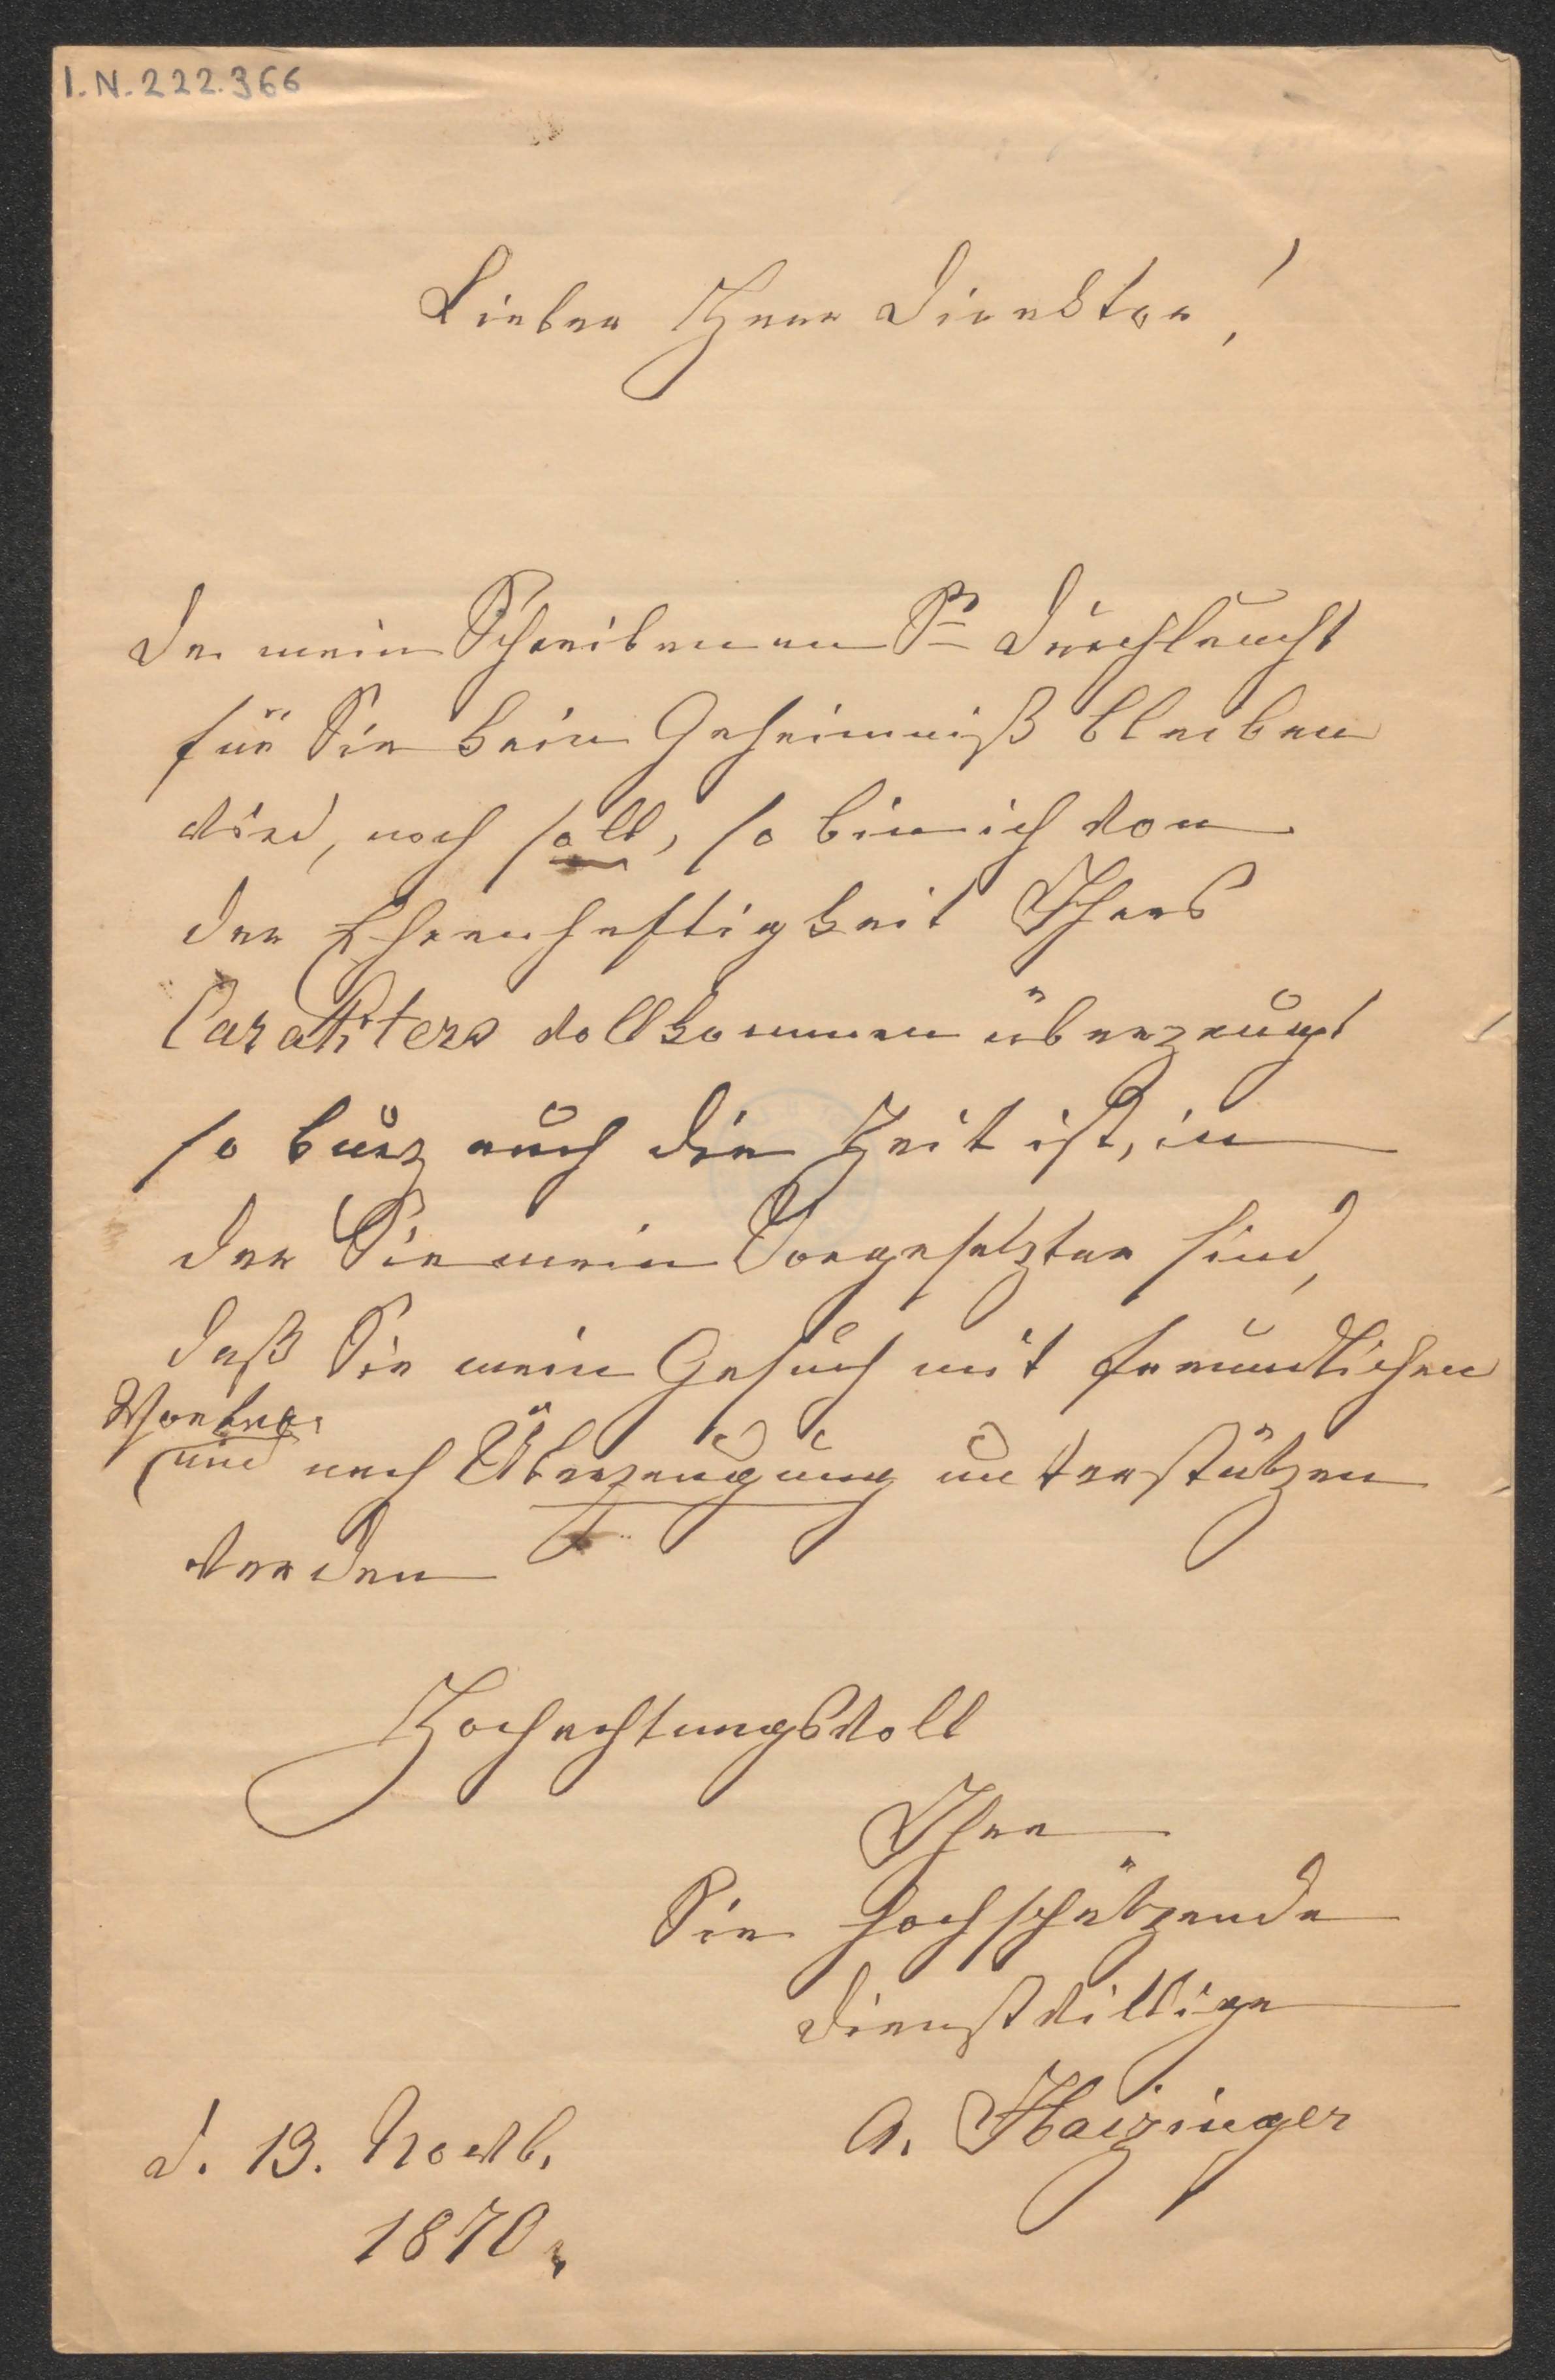 I.N. 222.366
Lieber Herr Direktor!
Da mein Schreiben an Sr Durchlaucht
für Sie kein Geheimniß bleiben
wird, noch soll, so bin ich von
der Ehrenhaftigkeit Ihres
Carakters vollkommen überzeugt
so kurz auch die Zeit ist, in
der Sie mein Vorgesetzter sind,
daß Sie mein Gesuch mit freundlichen
Worten
und nach Überzeugung unterstützen
werden
Hochachtungsvoll
Ihre
Sie hochschätzende
dienstwillige
A. Haizinger
d. 13. Novb.
1870.